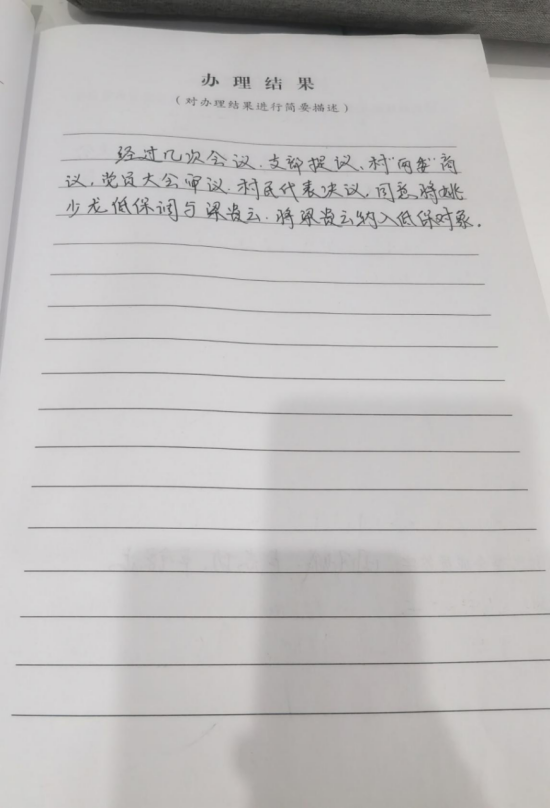 办理结果
（对办理结果进行简要描述）
经过几次会议．支部提议、村“两委”商
议，党员大会审议．村民代表决议，同意将姚
少龙低保调与梁贵云．将梁贵云纳入低保对象．